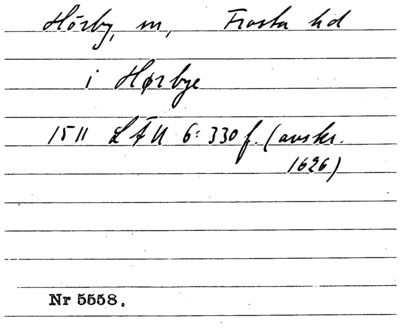 Hörby, sn, Frosta hd
i Hørbye
1511 LÄU 6: 330 f. (avskr.
1626)
Nr 5558.